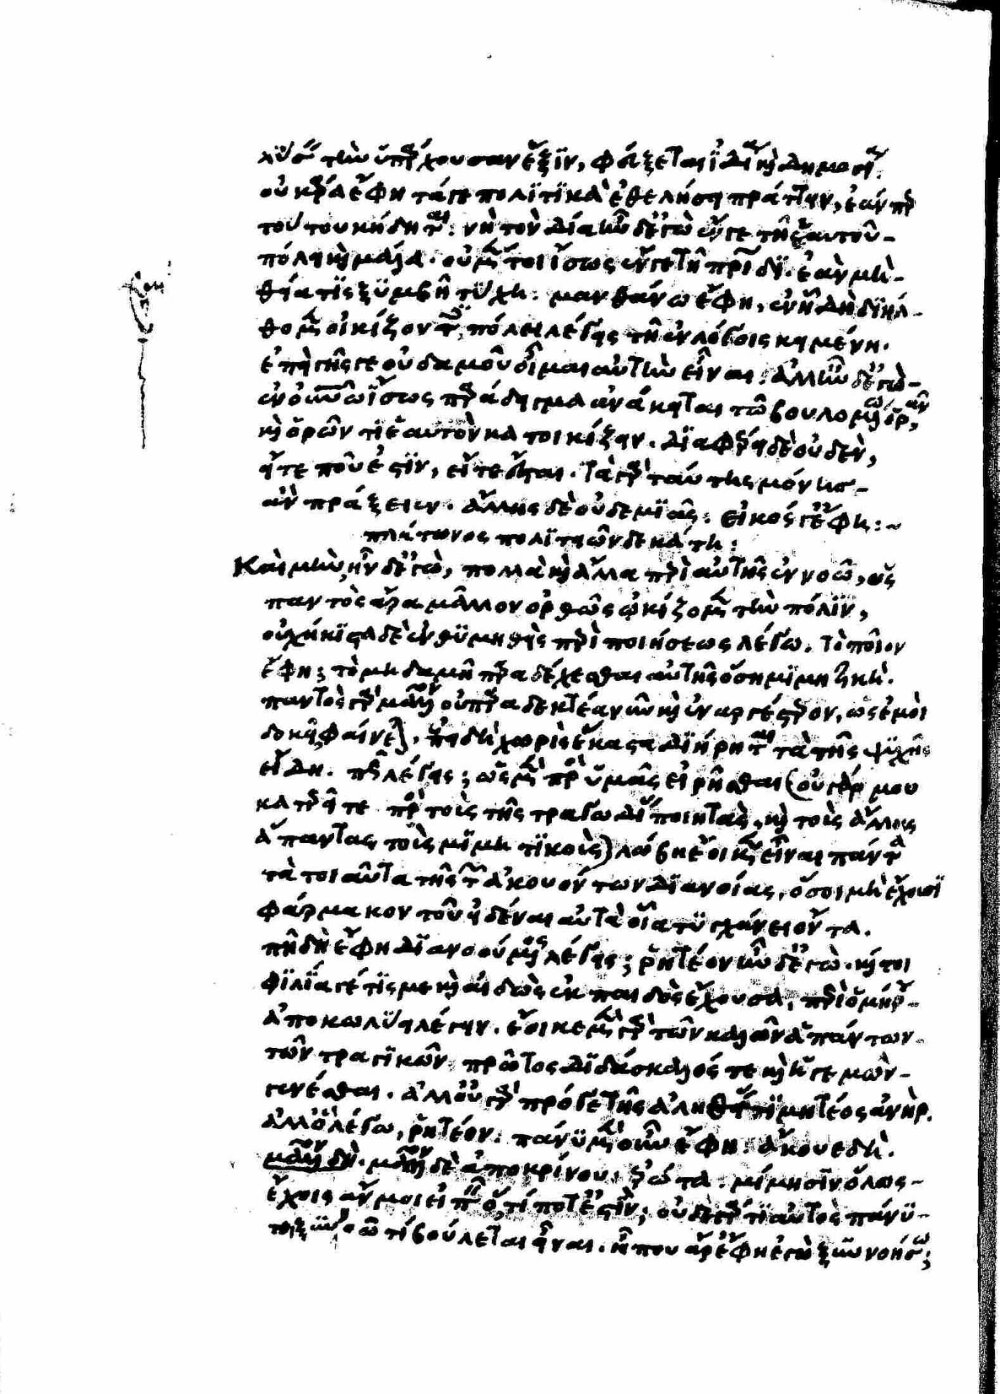 λύσειν τὴν ὑπάρχουσαν ἕξιν, φεύξεται ἰδίᾳ καὶ δημοσίᾳ.
οὐκ ἄρα ἔφη τά γε πολιτικὰ ἐθελήσει πράττειν, ἐάν περ
τούτου κήδηται: νὴ τὸν κύνα ἦν δ' ἐγὼ ἔν γε τῇ ἑαυτοῦ
πόλει καὶ μάλα. οὐ μέντοι ἴσως ἔν γε τῇ πατρίδι. ἐὰν μὴ
θεία τις ξυμβῇ τύχη: μανθάνω ἔφη, ἐν ᾗ νῦν διήλ-
θομεν οἰκίζοντες πόλει λέγεις τῇ ἐν λόγοις κειμένῃ.
ἐπεὶ γῆς γε οὐδαμοῦ οἶμαι αὐτὴν εἶναι: ἀλλ' ἦν δ' ἐγὼ
ἐν οὐρανῷ ἴσως παράδειγμα ἀνάκειται τῷ βουλομένῳ ὁρᾶν,
καὶ ὁρῶντι ἑαυτὸν κατοικίζειν. διαφέρει δὲ οὐδὲν,
εἴτε που ἐστὶν, εἴτε ἔσται. τὰ γὰρ ταύτης μόνης
ἂν πράξειεν. ἄλλης δὲ οὐδεμιᾶς: εἰκός γ' ἔφη:~
πλάτωνος πολιτειῶν δεκάτη:
Καὶ μὴν, ἦν δ' ἐγὼ, πολλὰ καὶ ἄλλα περὶ αὐτῆς ἐννοῶ, ὡς
παντὸς ἄρα μᾶλλον ὀρθῶς ᾠκίζομεν τὴν πόλιν,
οὐχ ἥκιστα δὲ ἐνθυμηθεὶς περὶ ποιήσεως λέγω. τὸ ποῖον
ἔφη; τὸ μηδαμῇ παραδέχεσθαι αὐτῆς ὅση μιμητική.
παντὸς γὰρ μᾶλλον οὐ παραδεκτέα νῦν καὶ ἐναργέστερον, ὡς ἐμοὶ
δοκεῖ, φαίνεται, ἐπειδὴ χωρὶς ἕκαστα διῄρηται τὰ τῆς ψυχῆς
εἴδη. πῶς λέγεις; ὡς μὲν πρὸς ὑμᾶς εἰρῆσθαι (οὐ γάρ μου
κατερεῖτε πρὸς τοὺς τῆς τραγῳδίας ποιητὰς, καὶ τοὺς ἄλλους
ἅπαντας τοὺς μιμητικοὺς) λώβη ἔοικεν εἶναι πάντα
τὰ τοιαῦτα τῆς τῶν ἀκουόντων διανοίας, ὅσοι μὴ ἔχουσι
φάρμακον τοῦ εἰδέναι αὐτὰ οἷα τυγχάνει ὄντα.
πῇ δὴ ἔφη διανοούμενος λέγεις; ῥητέον ἦν δ' ἐγὼ. καί τοι
φιλία γέ τίς με καὶ αἰδὼς ἐκ παιδὸς ἔχουσα, περὶ ὁμήρου
ἀποκωλύει λέγειν. ἔοικε μὲν γὰρ τῶν καλῶν ἁπάντων
τῶν τραγικῶν πρῶτος διδάσκαλός τε καὶ ἡγεμὼν
γενέσθαι. ἀλλ' οὐ γὰρ πρό γε τῆς ἀληθείας τιμητέος ἀνὴρ.
ἀλλ' ὃ λέγω, ῥητέον: πάνυ μὲν οὖν ἔφη: ἄκουε δὴ.
μᾶλλον δὴ. μᾶλλον δὲ ἀποκρίνου: ἐρώτα: μίμησιν ὅλως
ἔχοις ἄν μοι εἰπεῖν ὅ,τί ποτ' ἐστὶν; οὐδὲ γάρ τι αὐτὸς πάνυ
τι ξυννοῶ τί βούλεται εἶναι. ἦ που ἄρ' ἔφη ἐγὼ ξυννοήσω;